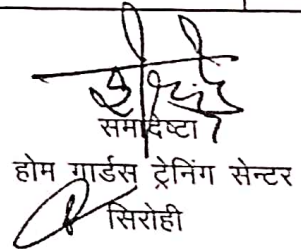 समादेष्टा
होम गार्डस ट्रेनिंग सेन्टर
सिरोही